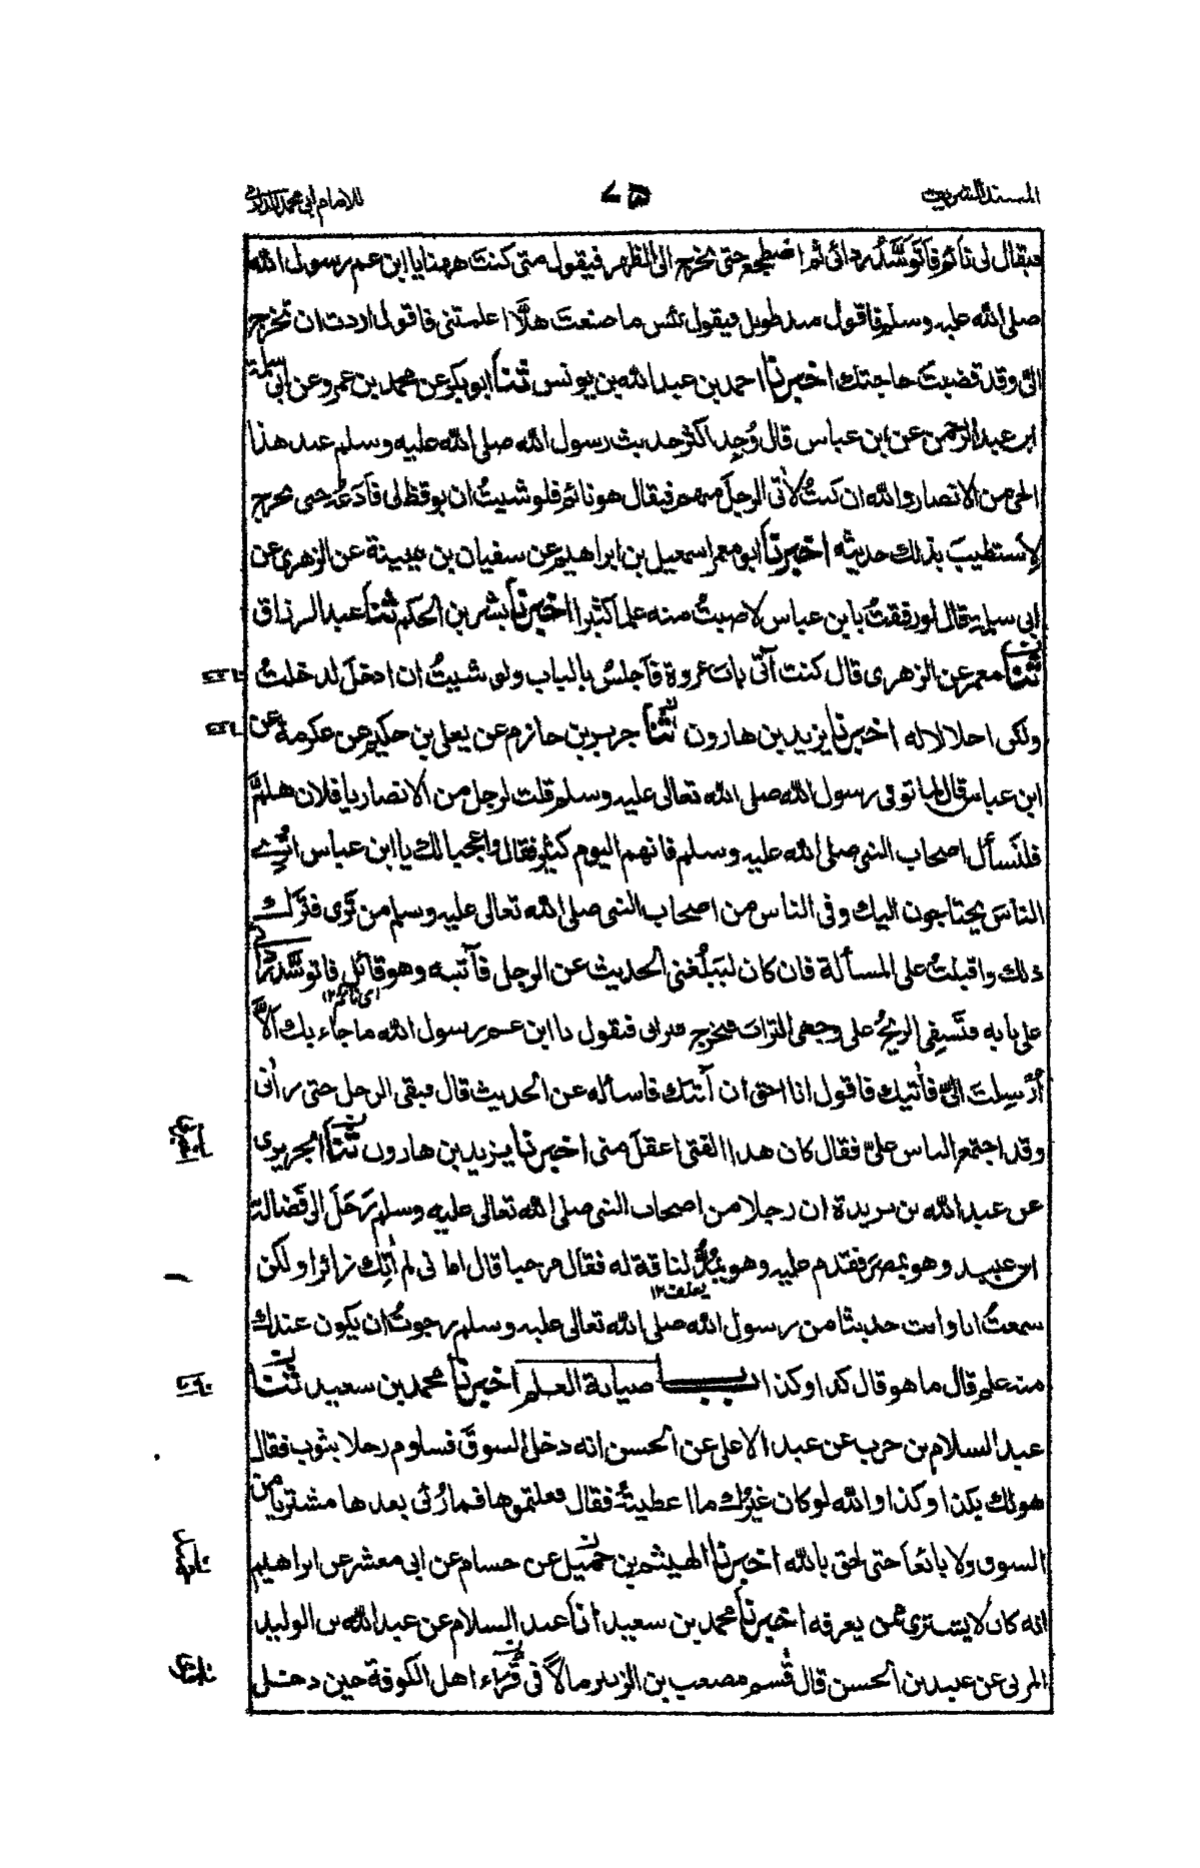 المسند الشريف
للامام ابي محمد الدارمي
فيقال لى نائم فاتوسد ردائى ثم اضطجع حتى يخرج الى الظهر فيقول متى كنت ههنا يا ابن عم رسول الله
صلى الله عليه وسلم فاقول منذ طويل فيقول بئس ما صنعت هلّا اعلمتنى فاقول اردت ان تخرج
الىّ وقد قضيت حاجتك اخبرنا احمد بن عبد الله بن يونس ثنا ابو بكر عن محمد بن عمرو عن ابى سلمة
ابن عبد الرحمن عن ابن عباس قال وُجِد اكثر حديث رسول الله صلى الله عليه وسلم عند هذا
الحى من الانصار والله ان كنتُ لآتى الرجل منهم فيقال هو نائم فلو شيتُ ان يوقظ لى فأدَعُه حتى يخرج
لِاَستطيبَ بذلك حديثه اخبرنا ابو معمر اسمعيل بن ابراهيم عن سفيان بن عيينة عن الزهرى عن
ابى سلمة قال لو رفقتُ بابن عباس لاصبتُ منه علما كثيرا اخبرنا بشر بن الحكم ثنا عبد الرزاق
ثنا معمر عن الزهرى قال كنت آتى باب عروة فأجلسُ بالباب ولو شيتُ ان ادخلَ لدخلتُ
ولكن اجلالا له اخبرنا يزيد بن هارون ثنا جرير بن حازم عن يعلى بن حكيم عن عكرمة عن
ابن عباس قال لما توفى رسول الله صلى الله تعالى عليه وسلم قلت لرجل من الانصار يا فلان هلمّ
فلنَسأل اصحاب النبى صلى الله عليه وسلم فانهم اليوم كثير فقال واعجبا لك يا ابن عباس اتُرى
الناسَ يحتاجون اليك وفى الناس من اصحاب النبى صلى الله تعالى عليه وسلم من تَرى فترك
ذلك واقبلتُ على المسألة فان كان ليَبلُغنى الحديث عن الرجل فآتيه وهو قائل فاتوسّد ردائى
اى نائم ١٢
على بابه فتَسفِى الريحُ على وجهى التراب فيخرج فيرانى فيقول يا ابن عم رسول الله ما جاء بك ألّا
أرسلتَ الىّ فأتيك فاقول انا احق ان آتيك فاسأله عن الحديث قال فبقى الرجل حتى رآنى
وقد اجتمع الناس علىّ فقال كان هذا الفتى اعقلَ منى اخبرنا يزيد بن هارون ثنا الجريرى
عن عبد الله بن بريدة ان رجلا من اصحاب النبى صلى الله تعالى عليه وسلم رَحَلَ الى فَضالة
ابن عبيد وهو بمصرَ فقدم عليه وهو يمُدّ لناقة له فقال مرحبا قال اما انى لم أتِك زائرا ولكن
يعلف ١٢
سمعتُ انا وانت حديثا من رسول الله صلى الله تعالى عليه وسلم رجوتُ ان يكون عندك
منه علم قال ما هو قال كذا وكذا باب صيانة العلم اخبرنا محمد بن سعيد ثنا
عبد السلام بن حرب عن عبد الاعلى عن الحسن انه دخل السوقَ فساوم رجلا بثوب فقال
هو لك بكذا وكذا والله لو كان غيرُك ما اعطيتُه فقال فعلتموها فما رُئى بعدها مشتريا من
السوق ولا بائعا حتى لحق بالله اخبرنا الهيثم بن جميل عن حسام عن ابى معشر عن ابراهيم
انه كان لا يشترى ممن يعرفه اخبرنا محمد بن سعيد انا عبد السلام عن عبد الله بن الوليد
المزنى عن عبيد بن الحسن قال قَسم مصعب بن الزبير مالاً فى قُرّاء اهل الكوفة حين دخل